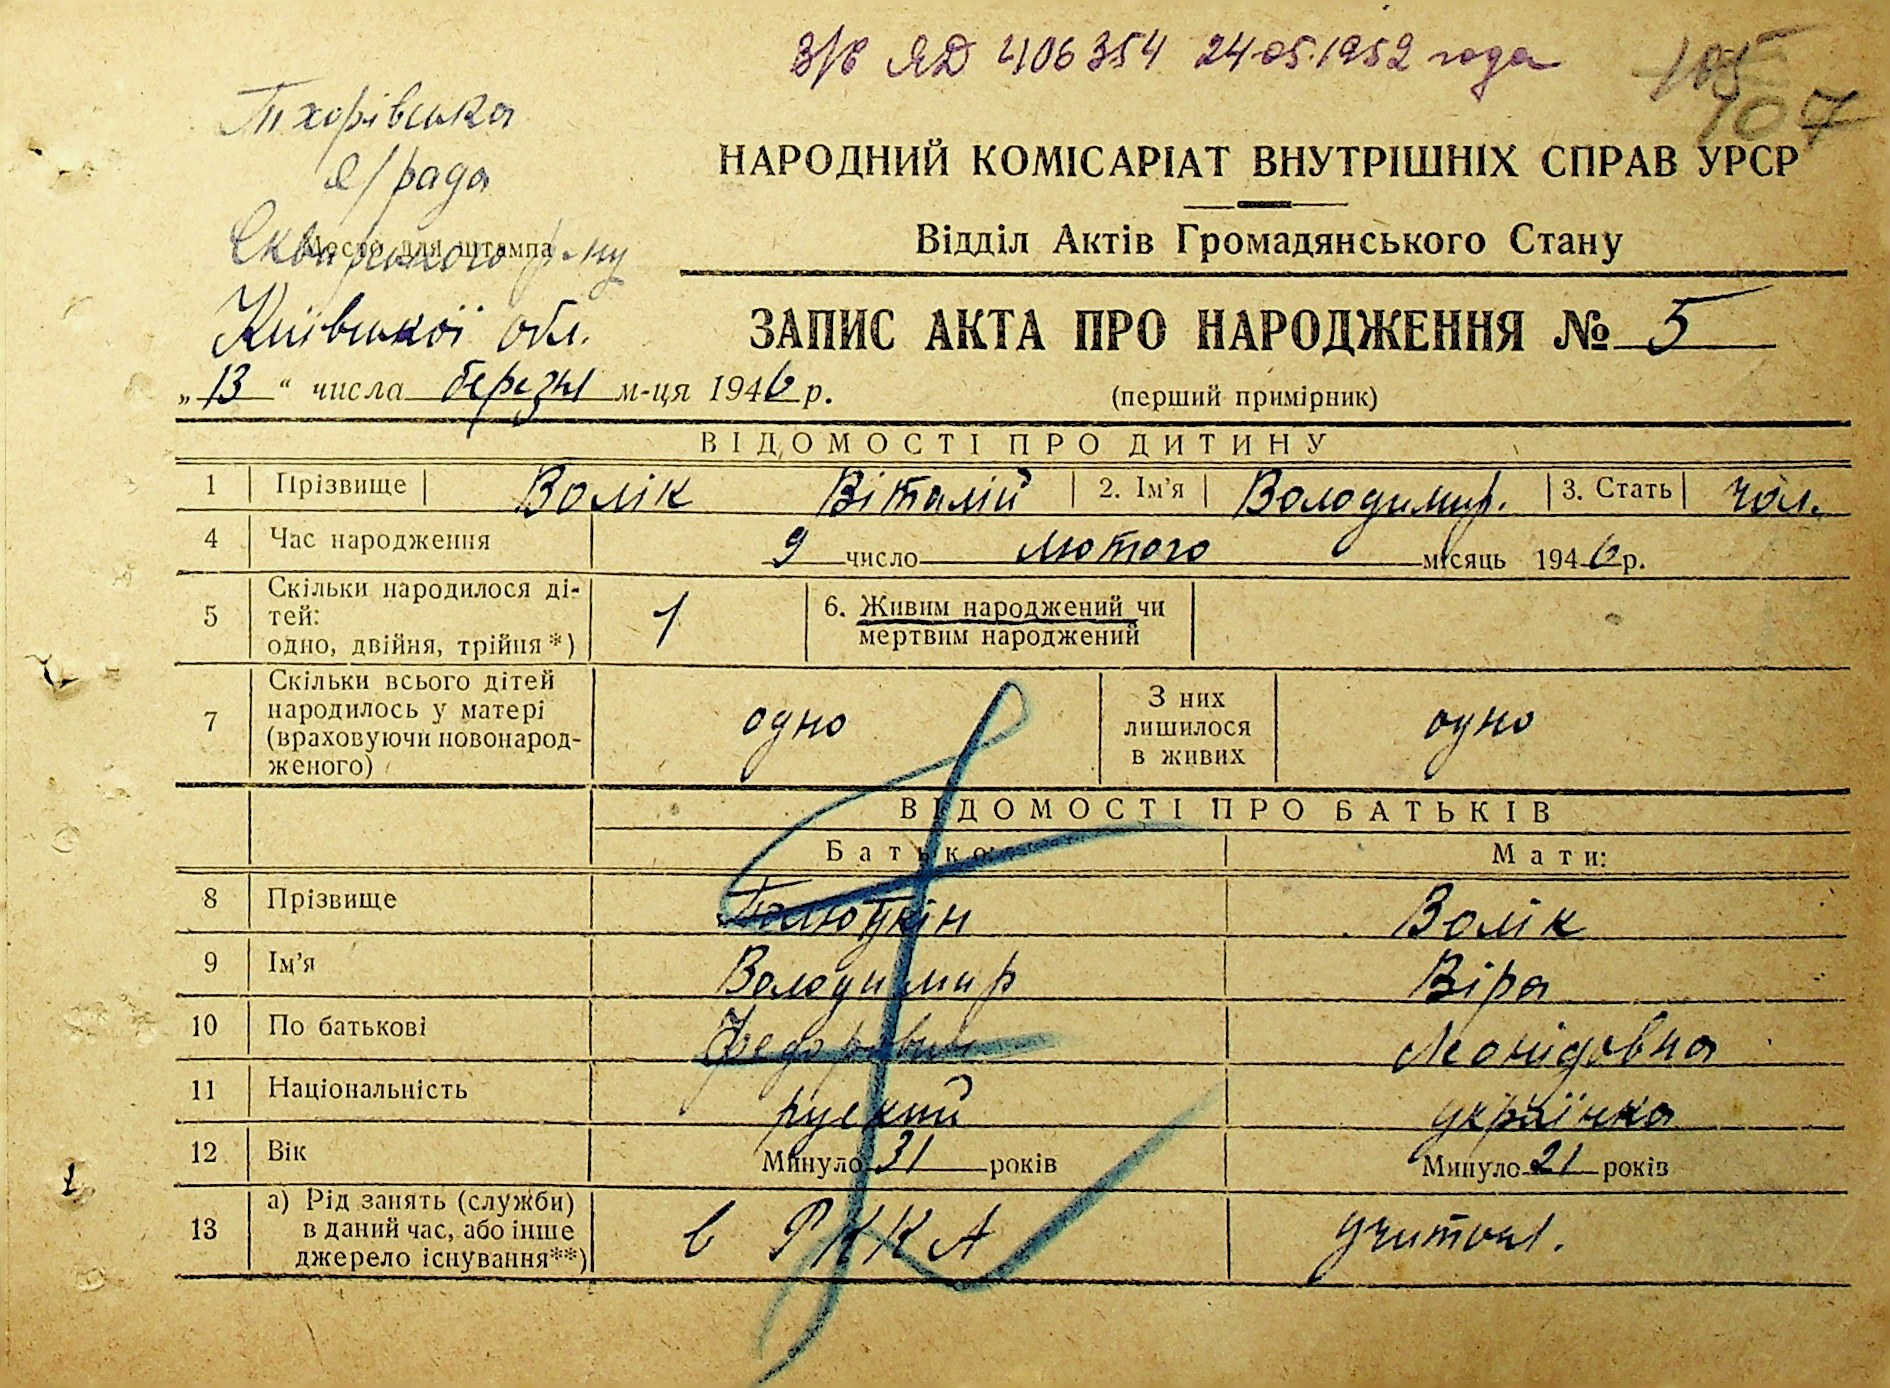 З/с ЯД 406354 24 05.1952 года
105
107
Тхорівська
с/рада
Сквирського р-ну
Місце для штампа
Київської обл.
НАРОДНИЙ КОМІСАРІАТ ВНУТРІШНІХ СПРАВ УРСР
Відділ Актів Громадянського Стану
ЗАПИС АКТА ПРО НАРОДЖЕННЯ № 5
„13“ числа березня м-ця 1946 р.
(перший примірник)
ВІДОМОСТІ ПРО ДИТИНУ
1 Прізвище Волік Віталій 2. Ім'я Володимир. 3. Стать чол.
4 Час народження 9 число лютого місяць 1946 р.
5 Скільки народилося ді-
тей:
одно, двійня, трійня *) 1
6. Живим народжений чи
мертвим народжений
7 Скільки всього дітей
народилось у матері
(враховуючи новонарод-
женого) одно
З них
лишилося
в живих одно
ВІДОМОСТІ ПРО БАТЬКІВ
Батько: Мати:
8 Прізвище Волік
9 Ім'я Володимир Віра
10 По батькові Федорович Леонідовна
11 Національність руский українка
12 Вік Минуло 31 років Минуло 21 років
13 а) Рід занять (служби)
в даний час, або інше
джерело існування**) в РККА учитель.